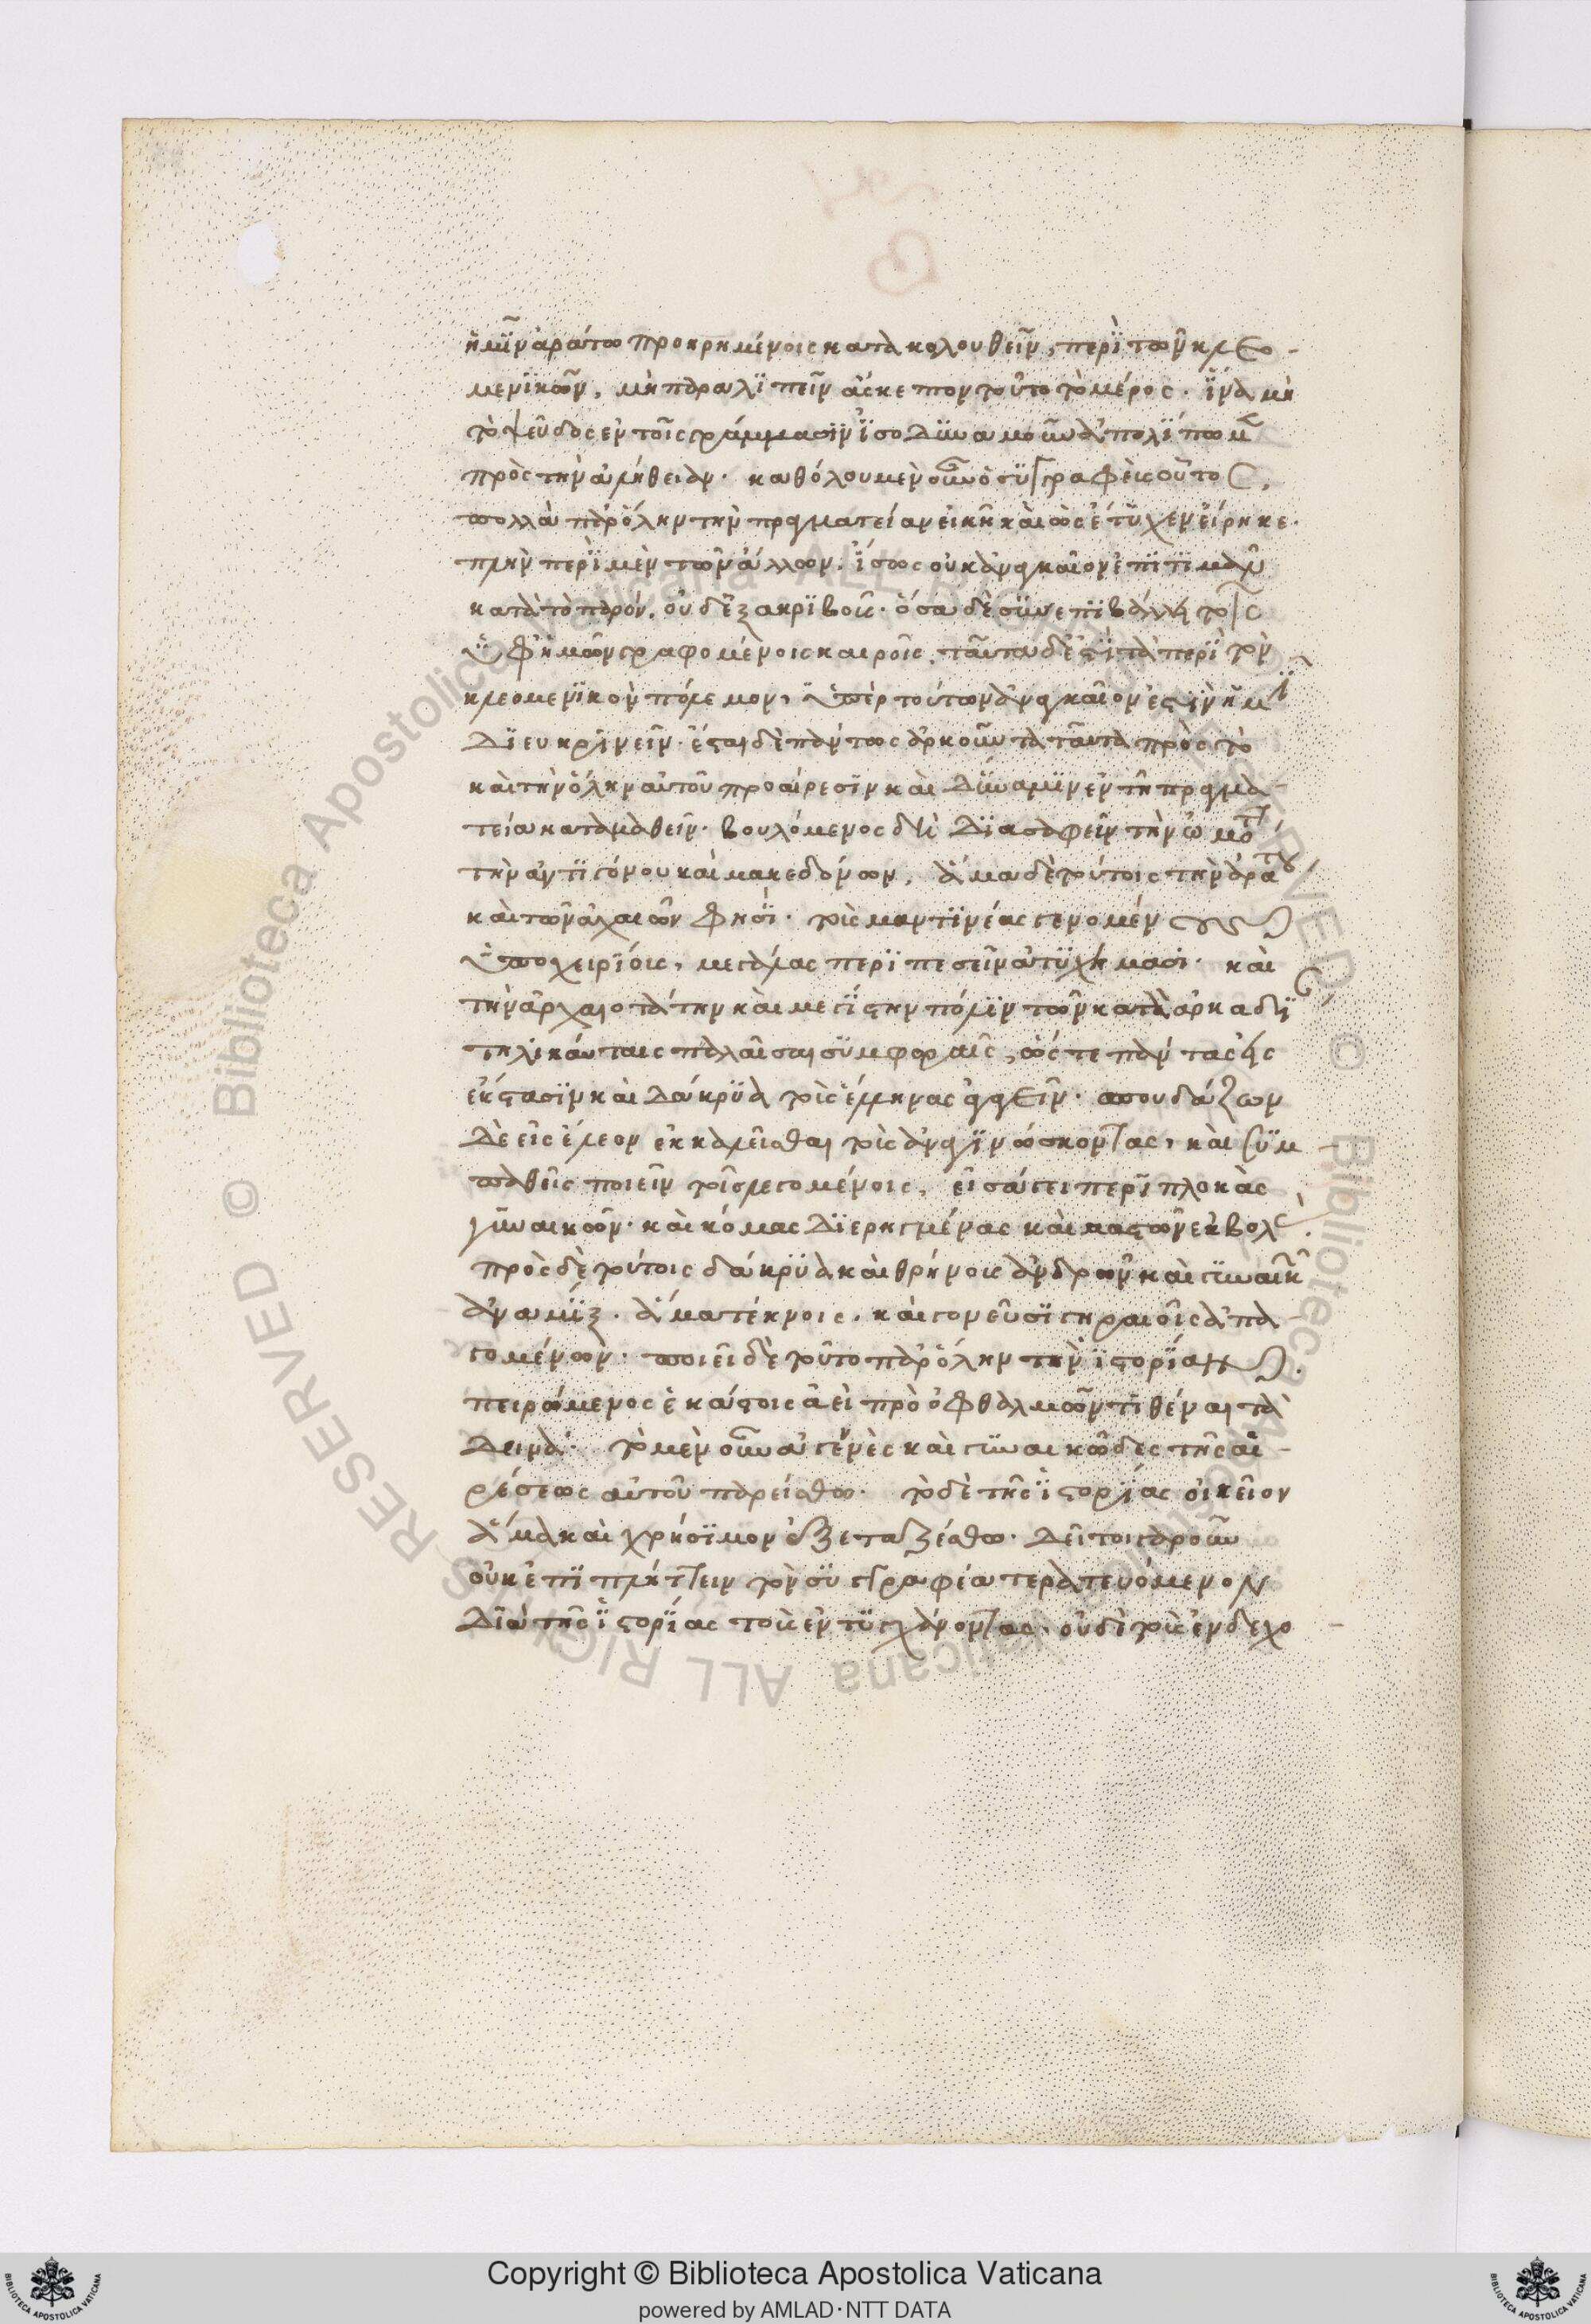 ἡμῖν ἀράτω προκρημένοις κατακολουθεῖν, περὶ τῶν κλεο-
μενϊκῶν, μὴ παραλϊπεῖν ἄσκεπτον τοῦτο τὸ μέρος. ἵνα μὴ
τὸ ψεῦδος ἐν τοῖς γράμμασιν ἰσοδυναμοῦν ἀπολίπωμ
πρὸς τὴν ἀλήθειαν. καθόλου μὲν οὖν ὁ συγγραφεὺς οὗτος,
πολλὰ παρ ὅλην τὴν πραγματείαν εἰκῆ καὶ ὡς ἔτυχεν εἴρηκε.
πλὴν περὶ μὲν τῶν ἄλλων. ἴσως οὐκ ἀναγκαῖον ἐπιτιμᾶν
κατὰ τὸ παρόν. οὐδ ἐξακριβοῦν. ὅσα δὲ συνεπιβάλλει τοῖς
ὑφ ἡμῶν γραφομένοις καιροῖς, ταῦτα δ ἐστὶ τὰ περὶ τὸν
κλεομενικὸν πόλεμον, ὑπὲρ τούτων ἀναγκαῖον ἐστὶν ἡμῖ
διευκρινεῖν. ἔσται δὲ πάντως ἀρκοῦντα ταῦτα πρὸς τὸ
καὶ τὴν ὅλην αὐτοῦ προαίρεσιν καὶ δύναμιν ἐν τῆ πραγμα-
τεία καταμαθεῖν. βουλόμενος δὴ διασαφεῖν τὴν ὠμότητ
τὴν ἀντιγόνου καὶ μακεδόνων, ἅμα δὲ τούτοις τὴν ἀράτου
καὶ τῶν ἀχαιῶν φησὶ. τοὺς μαντινέας γενομένους
ὑποχειρίους, μεγάλας περιπεσεῖν ἀτυχήμασι. καὶ
τὴν ἀρχαιοτάτην καὶ μεγίστην πόλιν τῶν κατὰ ἀρκαδί
τηλικαύταις παλαῖσαι συμφοραῖς, ὥστε πάντας εἰς
ἔκστασιν καὶ δάκρυα τοὺς ἕλληνας ἀγαγεῖν. σπουδάζων
δὲ εἰς ἔλεον ἐκκαλεῖσθαι τοὺς ἀναγινώσκοντας, καὶ συμ-
παθεῖς ποιεῖν τοῖς λεγομένοις, εἰσάγει περιπλοκὰς
γυναικῶν. καὶ κόμας διερηγμένας καὶ μαστῶν ἐκβολὰς.
πρὸς δὲ τούτοις δάκρυα καὶ θρήνους ἀνδρῶν καὶ γυναικ
ἀναμίξ. ἅμα τέκνοις. καὶ γονεῦσι γηραιοῖς ἀπα-
γομένων. ποιεῖ δὲ τοῦτο παρ ὅλην τὴν ἱστορίαν.
πειρώμενος ἑκάστοις ἀεὶ πρὸ ὀφθαλμῶν τιθέναι τὰ
δεινά. τὸ μὲν οὖν ἀγενὲς καὶ γυναικῶδες τῆς αἱ-
ρέσεως αὐτοῦ παρείσθω. τὸ δὲ τῆς ἱστορίας οἰκεῖον
ἅμα καὶ χρήσιμον ἐξεταζέσθω. δεῖ τοιγαροῦν
οὐκ ἐπιπλήττειν τὸν συγγραφέα τερατευόμενον
διὰ τῆς ἱστορίας τοὺς ἐντυγχάνοντας. οὐδὲ τοὺς ἐνδεχο-